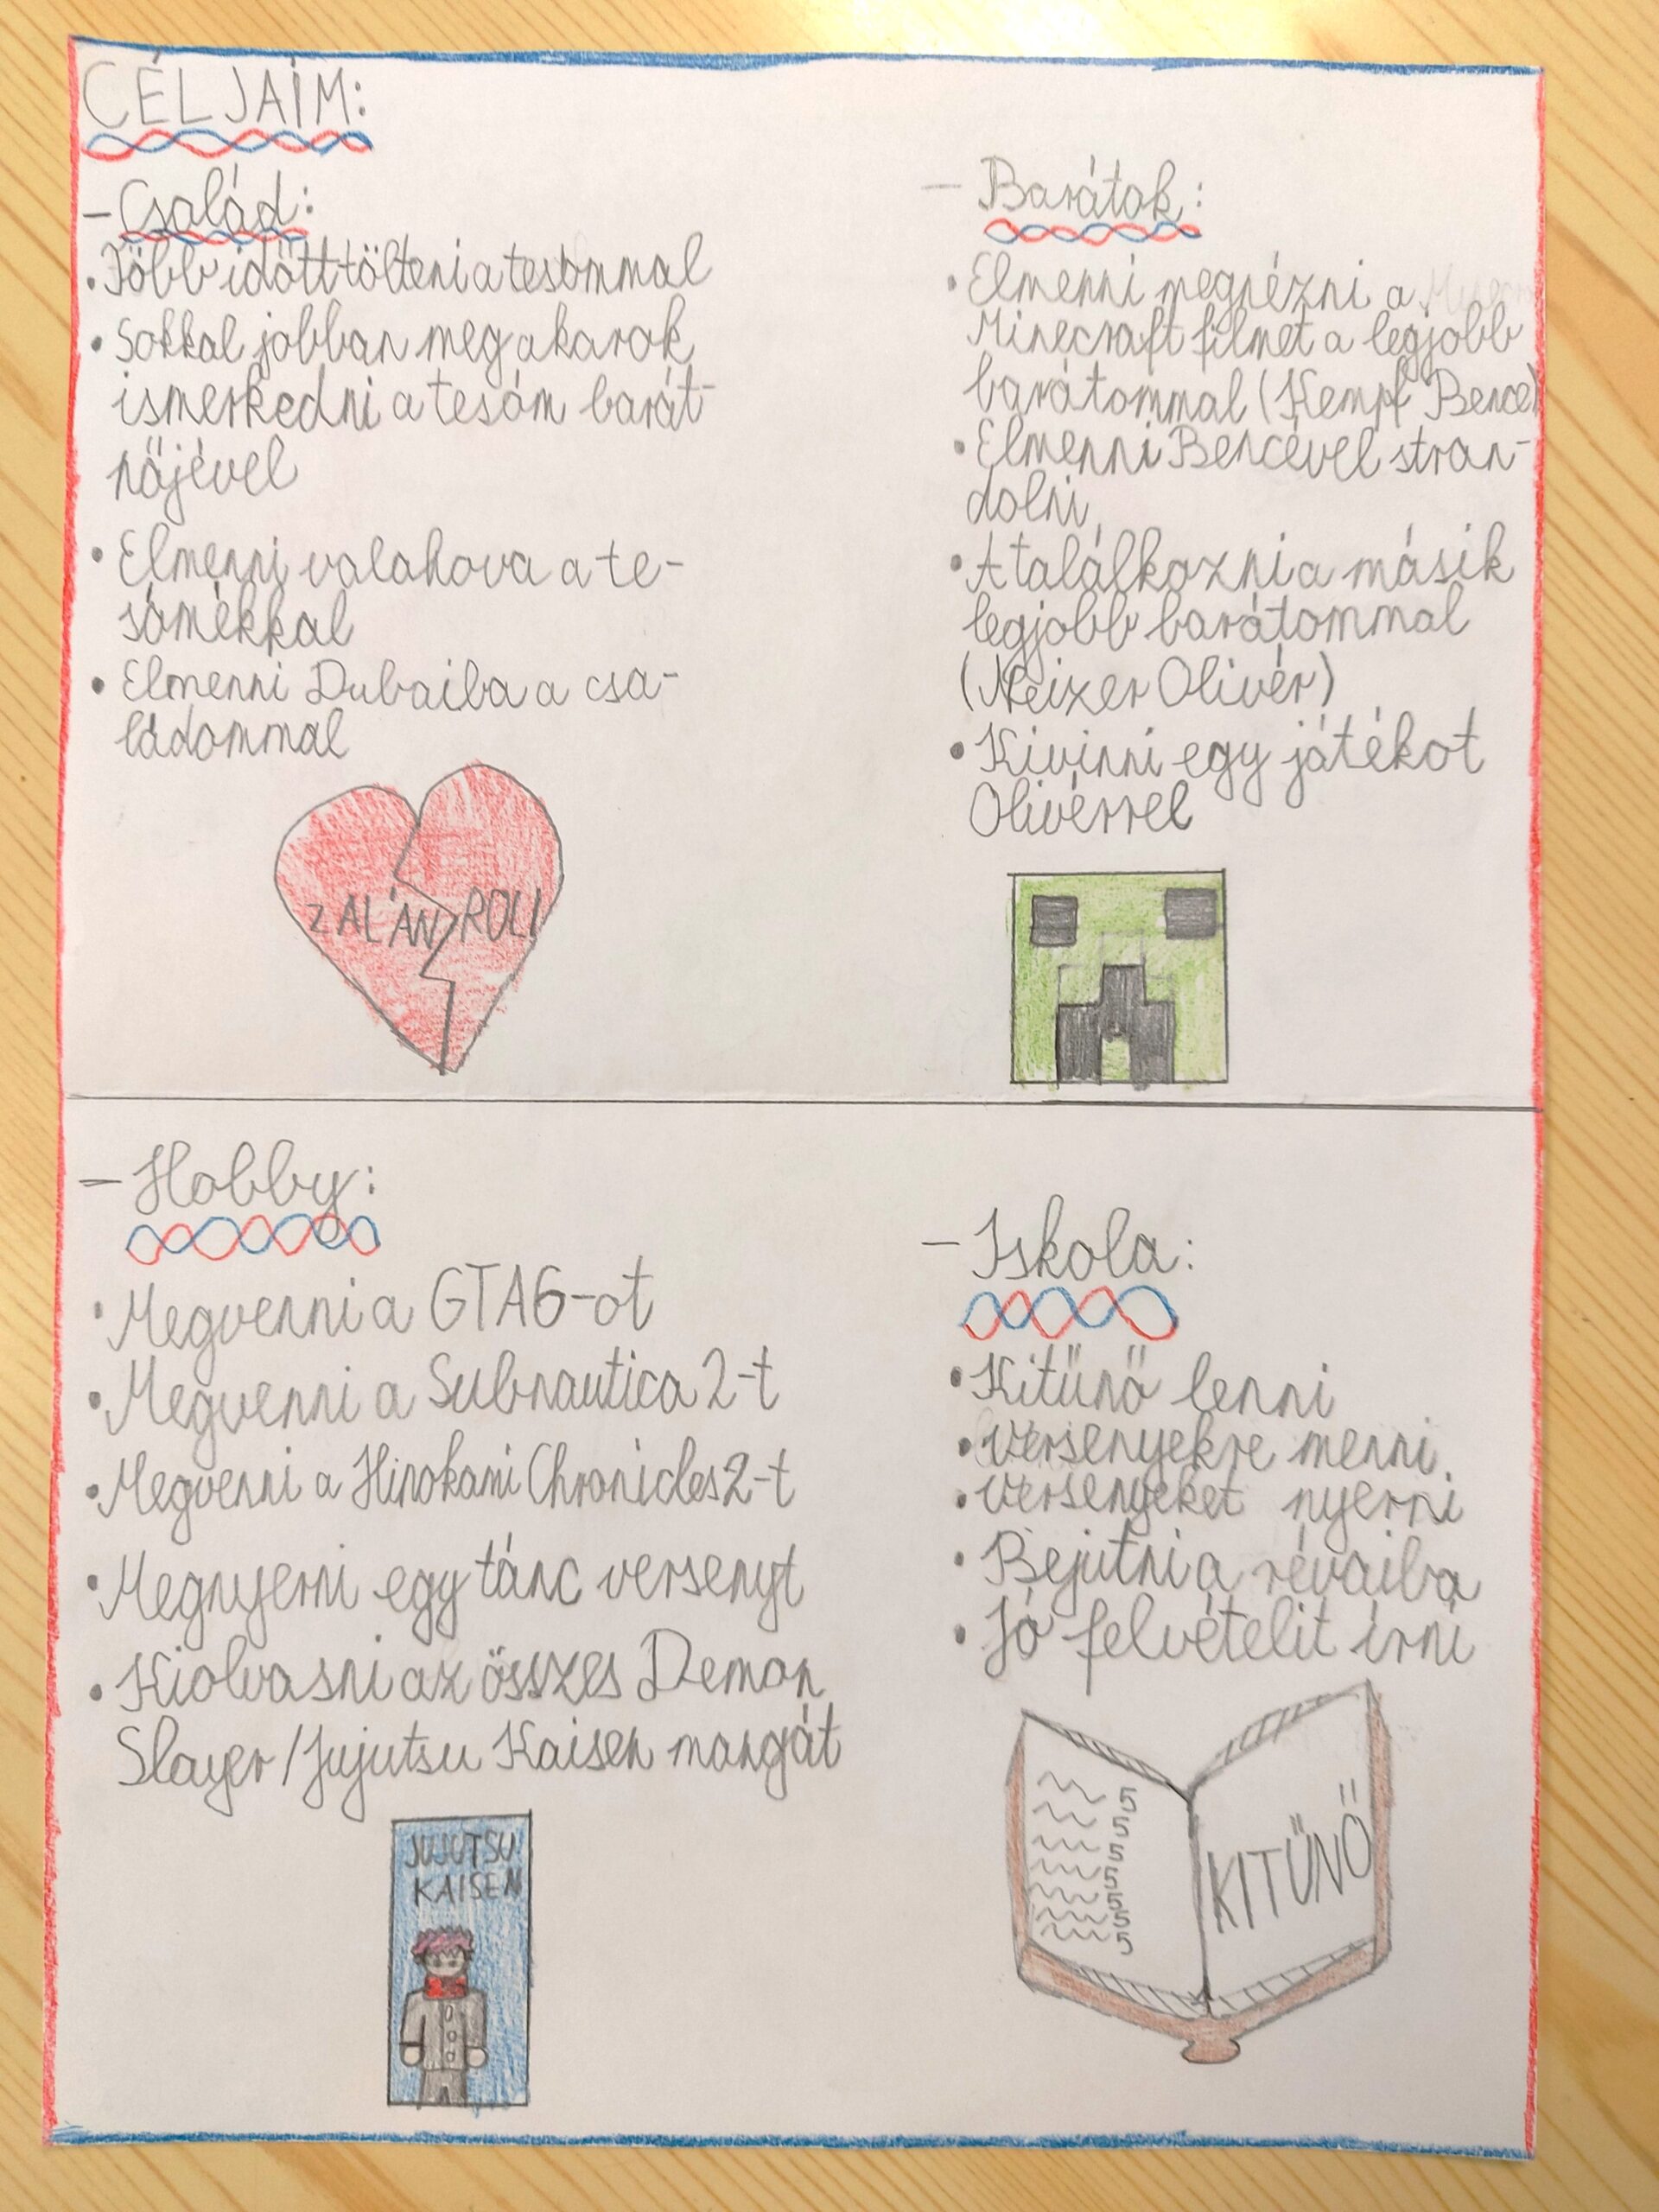 CÉLJAIM:
- Család:
• Több időtt tölteni a tesómmal
• Sokkal jobban meg akarok
ismerkedni a tesóm barát-
nőjével
• Elmenni valahova a te-
sómékkal
• Elmenni Dubaiba a csa-
ládommal
ZALÁN ROLI
- Barátok:
• Elmenni megnézni a
Minecraft filmet a legjobb
barátommal (Kempf Bence)
• Elmenni Bencével stran-
dolni
• A találkozni a másik
legjobb barátommal
(Neizer Olivér)
• Kivinni egy játékot
Olivérrel
- Hobby:
• Megvenni a GTA6-ot
• Megvenni a Subnautica 2-t
• Megvenni a Hinokami Chronicles 2-t
• Megnyerni egy tánc versenyt
• Kiolvasni az összes Demon
Slayer / Jujutsu Kaisen mangát
JUJUTSU
KAISEN
- Iskola:
• Kitűnő lenni
• Versenyekre menni
• Versenyeket nyerni
• Bejutni a révaiba
• Jó felvételit írni
5
5
5
5
5
5
5
KITŰNŐ